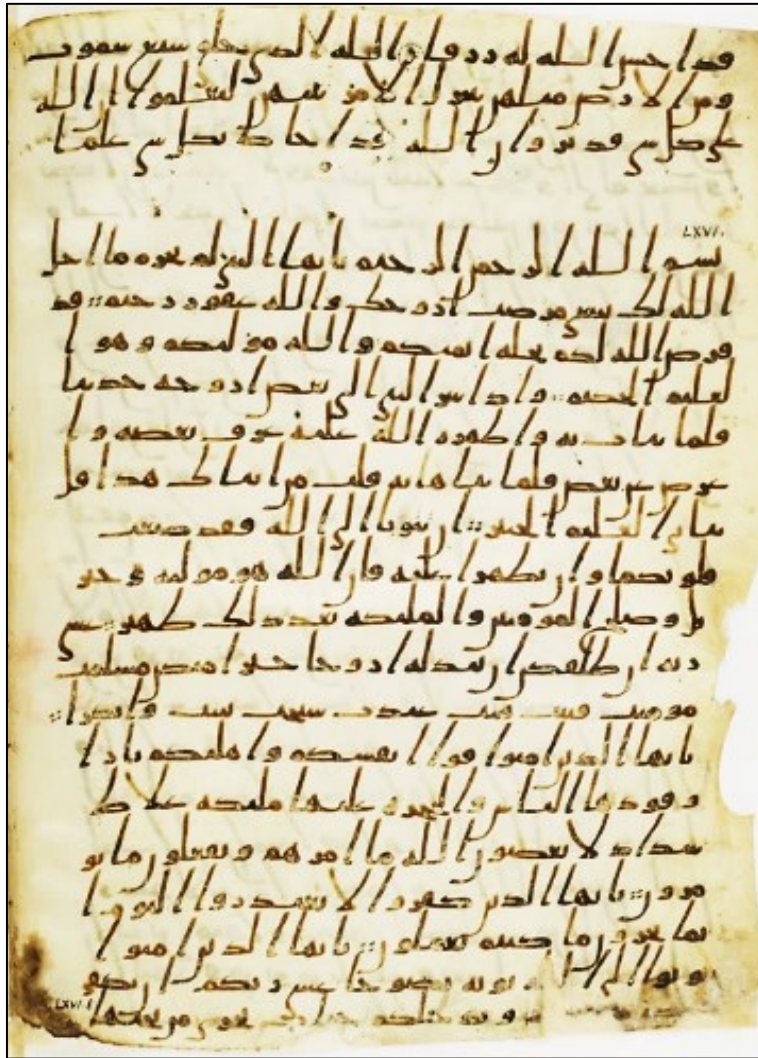 قد احسن الله له رزقا الله الذي خلق سبع سموت
ومن الارض مثلهن يتنزل الامر بينهن لتعلموا ان الله
على كل شي قدير وان الله قد احاط بكل شي علما
LXVI.
بسم الله الرحمن الرحيم يايها النبي لم تحرم ما احل
الله لك تبتغي مرضت ازوجك والله غفور رحيم قد
فرض الله لكم تحلة ايمنكم والله موليكم وهو ا
لعليم الحكيم واذ اسر النبي الى بعض ازوجه حديثا
فلما نبات به واظهره الله عليه عرف بعضه وا
عرض عن بعض فلما نباها به قلت من انباك هذا قل
نباني العليم الخبير ان تتوبا الى الله فقد صغت
قلوبكما وان تظهرا عليه فان الله هو موليه وجبر
يل وصلح المومنين والمليكة بعد ذلك ظهير عسى
ربه ان طلقكن ان يبدله ازوجا خيرا منكن مسلمت
مومنت قنتت تيبت عبدت سيحت ثيبت وابكرا
يايها الذين امنوا قوا انفسكم واهليكم نارا
وقودها الناس والحجرة عليها مليكة غلاظ
شداد لا يعصون الله ما امرهم ويفعلون ما يو
مرون يايها الذين كفروا لا تعتذروا اليوم ا
نما تجزون ما كنتم تعملون يايها الذين امنوا
توبوا الى الله توبة نصوحا عسى ربكم ان يكفر
LXVI.8 ويدخلكم جنت تجري من تحتها